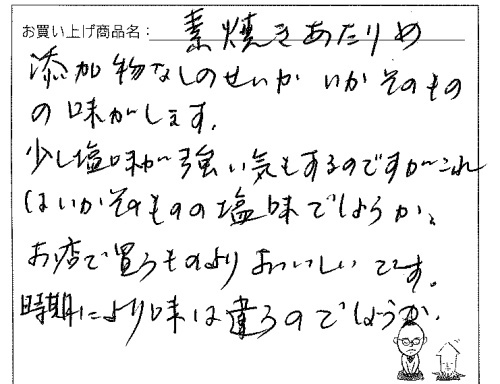 お買い上げ商品名：素焼きあたりめ
添加物なしのせいか いかそのもの
の味がします。
少し塩味が強い気もするのですがこれ
はいかそのものの塩味でしょうか、
お店で買うものよりおいしいです。
時期により味は違うのでしょうか.